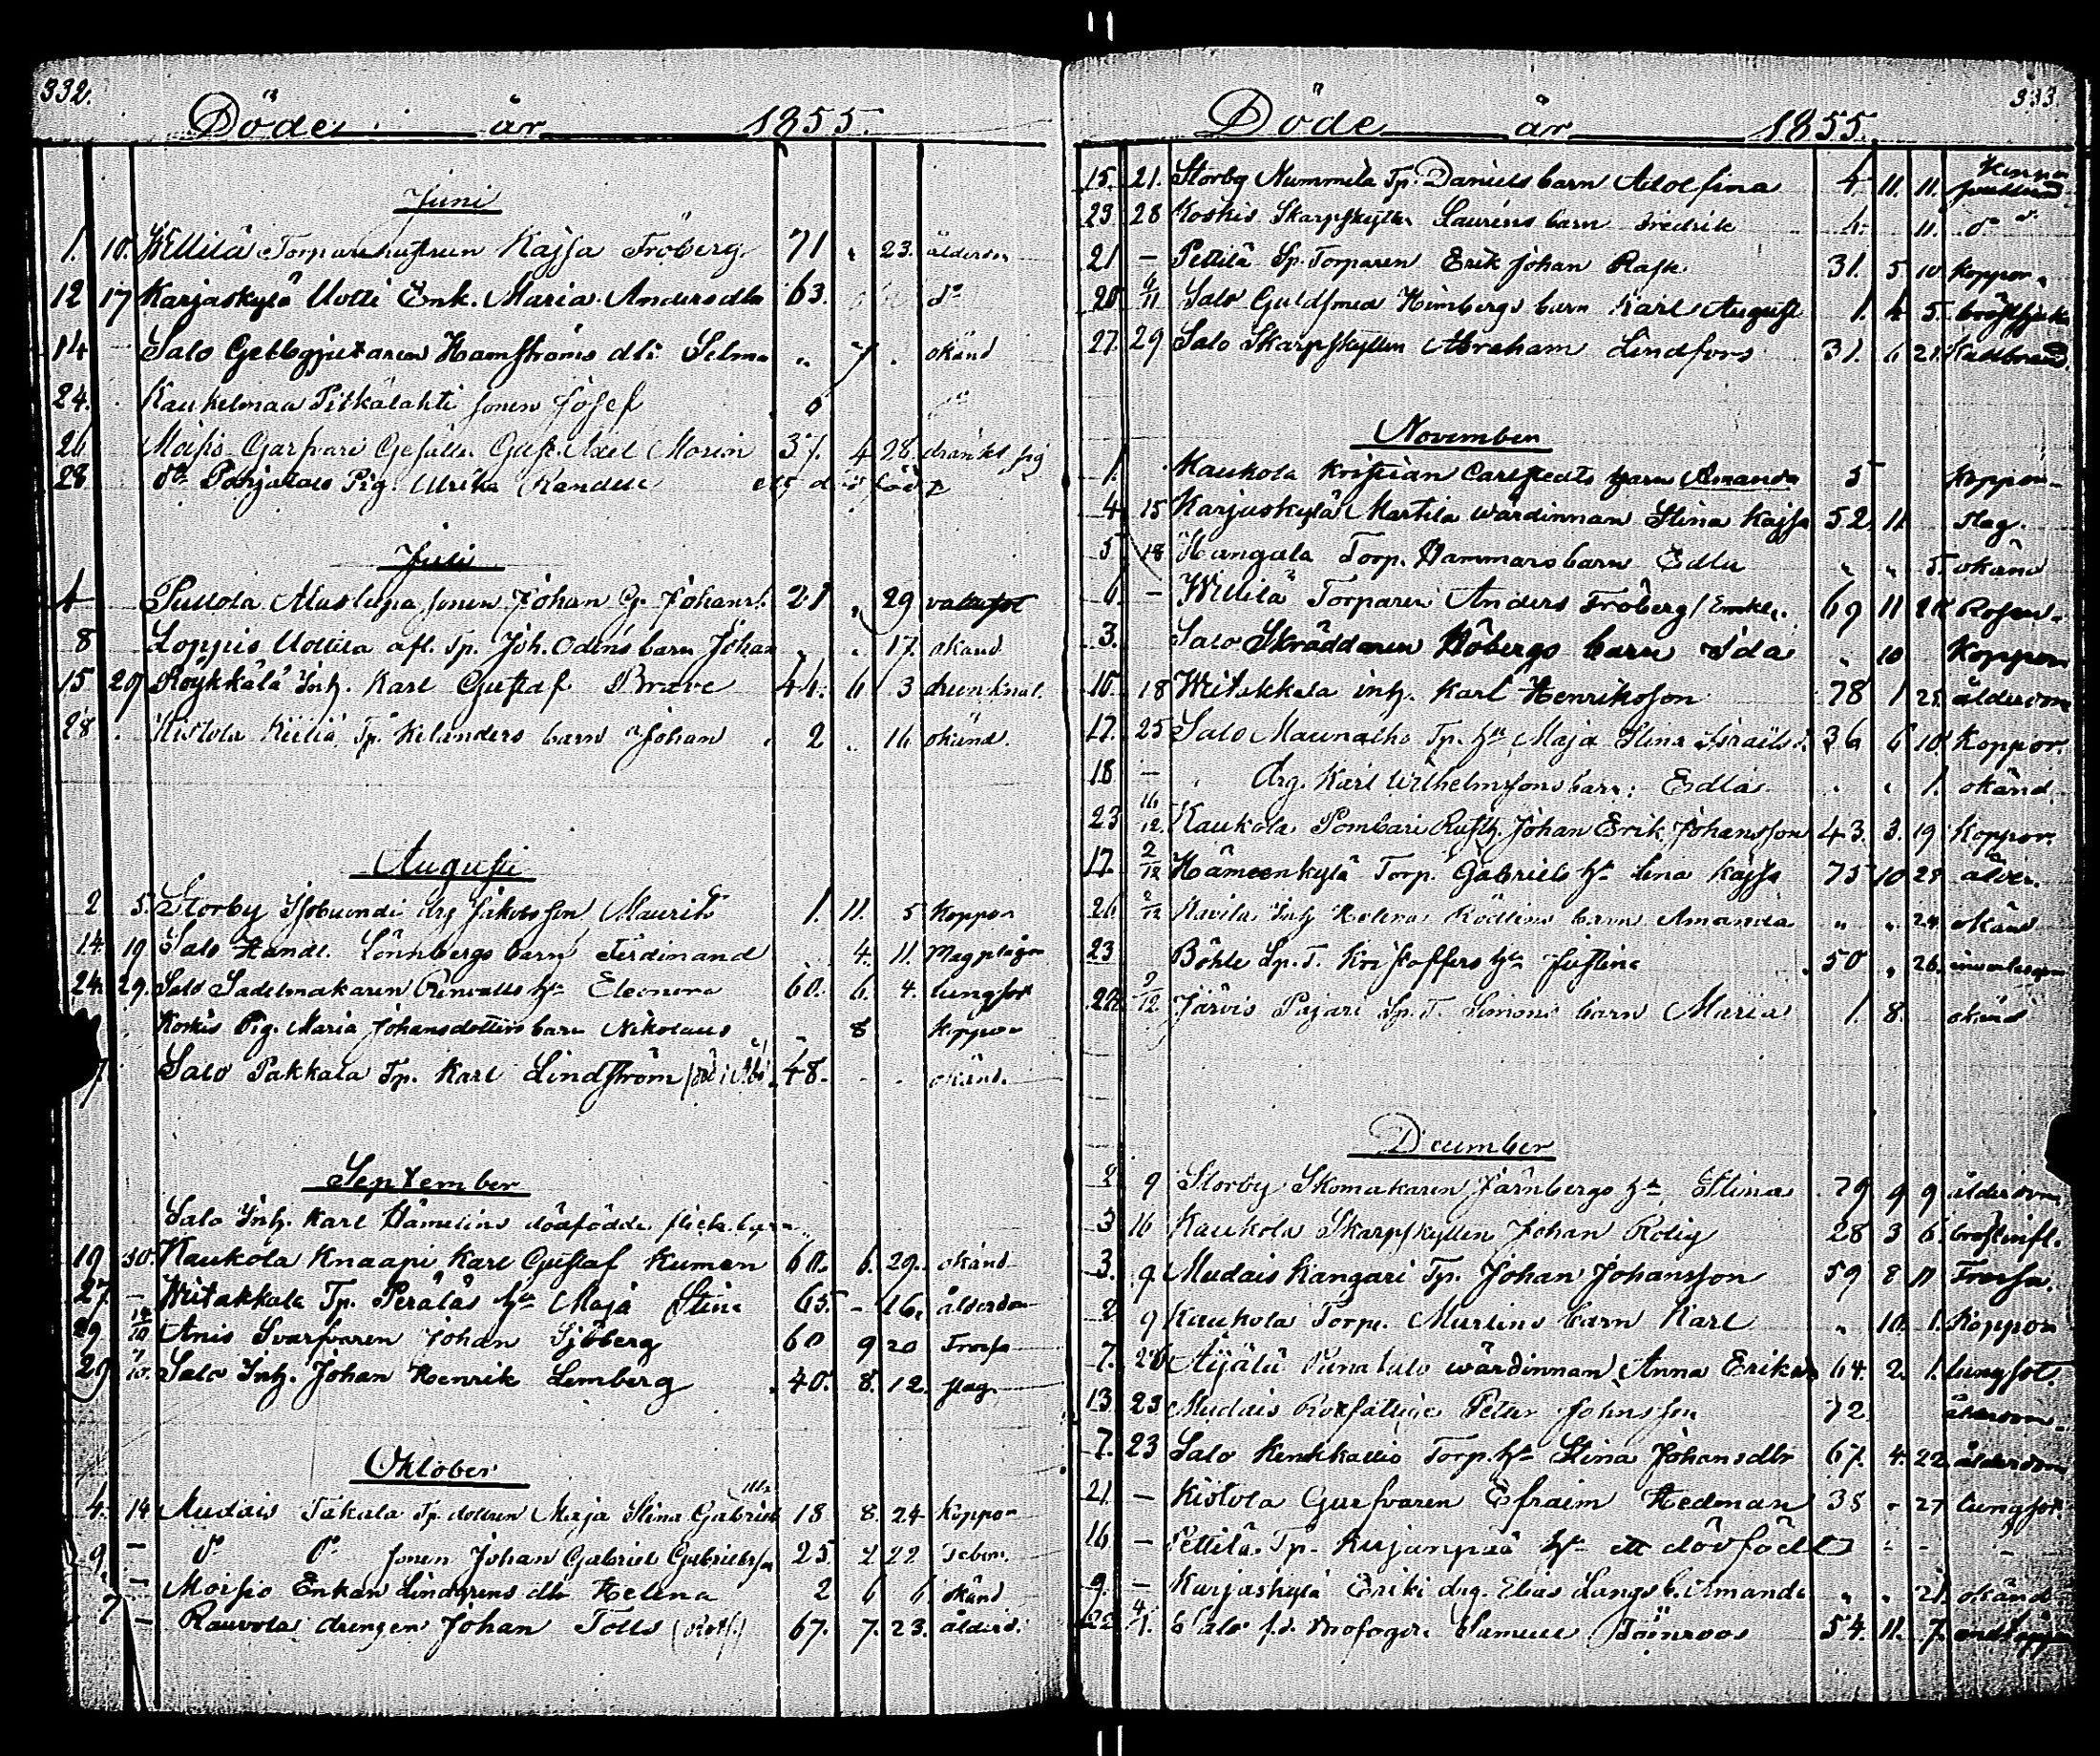 332.
Döde år 1855.
Juni
1. 10. Torparehustrun Kajsa Fröberg 71 " 23. ålderdom
12 17 Karjaskylä Uotti Enk. Maria Andersdtr 63. do
14 Salo Hamströms dtr Selma " 7 " okänd
24. Pitkälahti sonen Josef
26 Moisio Garfvare Gesällen Gust. Axel Morin 37. 4 28. dränkt sig
28 do Pohjatalo Pig. Ulrika
Juli
Pullola sonen Johan G. Johanss. 21 " 29 vattusot
8 Loppis Uotila afl. Tp. Joh. Odens barn Johan " " 17. okänd
15 29 Röykkälä Inh. Karl Gustaf Brave 44. 6 3 drunknat.
28 Kistola Tp. Kilanders barn Johan 2 " 16 okänd.
Augusti
2 5. Storby drg Jakobsson Maurits 1. 11. 5 Koppor
14. 19 Salo Handl. Lönnbergs barn Ferdinand 4. 11. Magplågor
24. 29. Salo Sadelmakaren hu Eleonora 60. 6. 4. lungsot
Koskis Pig. Maria Johansdotters barn Nikolaus 8 koppor
7 Salo Pakkala Tp. Karl Lindström 48. - - okänd.
September
Salo Inh. Karl Hämelins dödfödde flick. barn
19 30. Kaukola Knaapi Karl Gustaf Kumen 60. 6. 29. okänd
27. - Witakkala Tp. Peralas hu Maja Stina 65. - 16. ålderdom
29 14/10 Anis Svarfvaren Johan Sjöberg 60 9 20 Frossa
29 7/10. Salo Inh. Johan Henrik Lemberg 40. 8. 12. slag.
Oktober
4. 14 Mudais Takala Tp. dottren Maja Stina Gabriels 18 8. 24 Koppor
9. - do do sonen Johan Gabriel Gabrielsson 25. 2 22
- Moisio Enkan Lindgrens dtr Helena 2 6 6. okänd
7 - Rauvola drengen Johan Tolls 67. 7. 23. ålderd.
333.
Döde år 1855.
15. 21. Storby Nummila Tp. Daniels barn Adolfina 4 11. 11.
23. 28 Koskis Skarpskytten Laurens barn Fredrik 4. 11. do
21 - Pettilä Sp. Torparen Erik Johan Rask 31. 5 10 Koppor.
20 9/11 Salo Guldsmed Himbergs barn Karl August 1. 4 5. bröstsjuka
27. 29 Salo Skarpskytten Abraham Lindfors 31. 6 21. Kallbrand.
November
1. Kaukola Kristian Carlstedts barn Amanda 5 Koppor
4. 15 Karjaskylä Martila wärdinnan Stina Kajsa 52. 11 slag.
5 18 Hangala Torp. Hammars barn Edla " " 5. okänd
6. - Torparen Anders Fröberg 69 11 28 Rosen.
3. Salo Skräddaren Höbergs barn Ida " 10 Koppor
10. 18 Witakkala inh. Karl Henriksson 78 1 25. ålderdom
17. 25 Salo Tp. hu Maja Stina Israels d. 36 6 10 Koppor.
18 - drg. Karl Wilhelmssons barn: Edla " " 1. okänd.
23 16/12. Kaukola Pombari Rusth. Johan Erik Johansson 43. 3. 19 Koppor.
17. 2/12 Hämeenkylä Torp. Gabriels hu Lina Kajsa 75 10 28 ålder.
26 2/12 Inh Helena barn Amanda " " 24. okänd
23 Böhle Sp. T. Kristoffers hu Justina 50 " 26.
28. 9/12 Järvis Pajari Sp. T. Simons barn Maria 1. 8. okänd
December
2 9 Storby Skomakaren Järnbergs hu Stina 79 9 9 ålderdom
3 16 Kaukola Skarpskytten Johan Rolig 28 3 6. bröstinfl.
3. 9. Mudais Kangari Tp. Johan Johansson 59 8 11 Frossa.
2 9 Kaukola Torp. Murlins barn Karl " 10. 1. Koppor
7. 26 Äijälä wärdinnan Anna Eriksd. 64. 2. 1. lungsot.
13. 23 Mudais Rotfattige Petter Johnsson 72 ålderdom
7. 23 Salo Torp. hu Stina Johansdtr 67. 4. 22 ålderdom
21. - Kistola Garfvaren Efraim Hedman 38 - 27 lungsot.
16 - Pettilä Tp. Kujanpää hu ett dödfödt
9. - Karjaskylä Eriki drg. Elias Langs b. Amanda " " 21. okänd
22 4/1. Salo f.d. Profossen Samuel Törnroos 54. 11. 7.